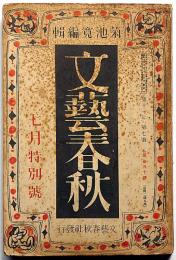 菊池寛編輯
文藝春秋
七月特別號
文藝春秋社發行